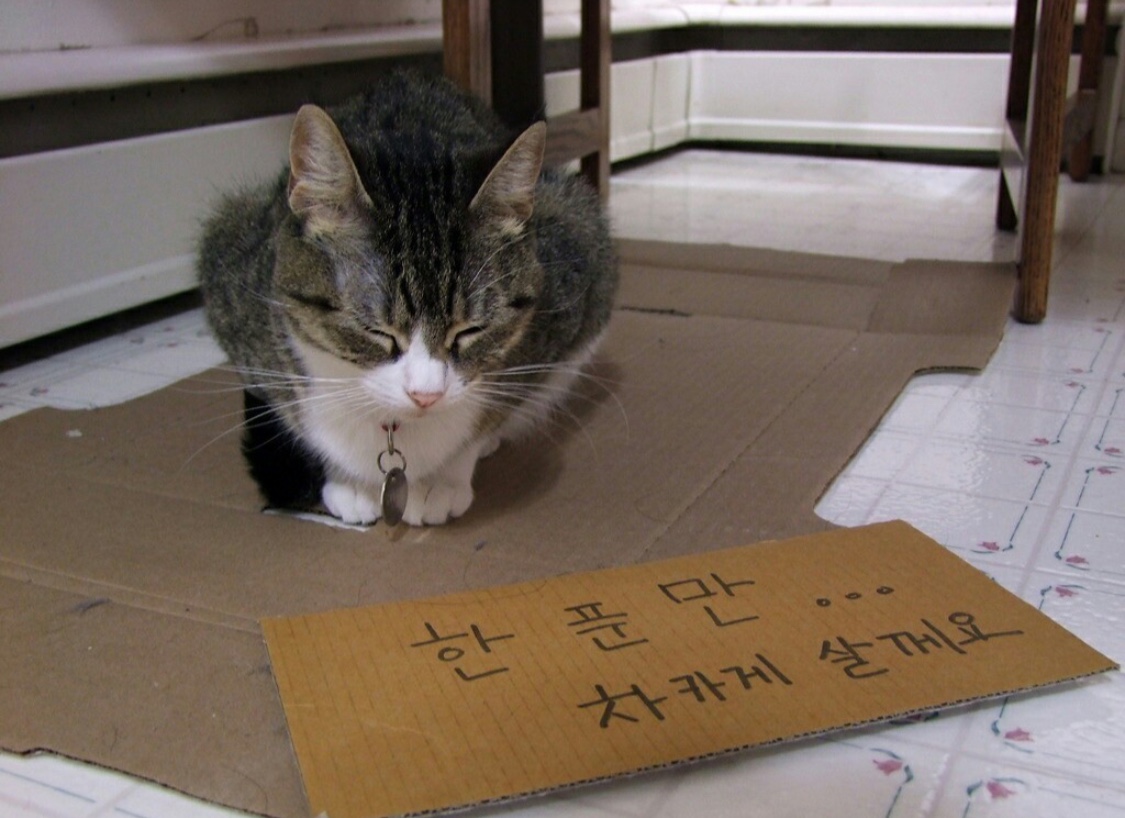 한 푼 만 ...
차카게 살께요